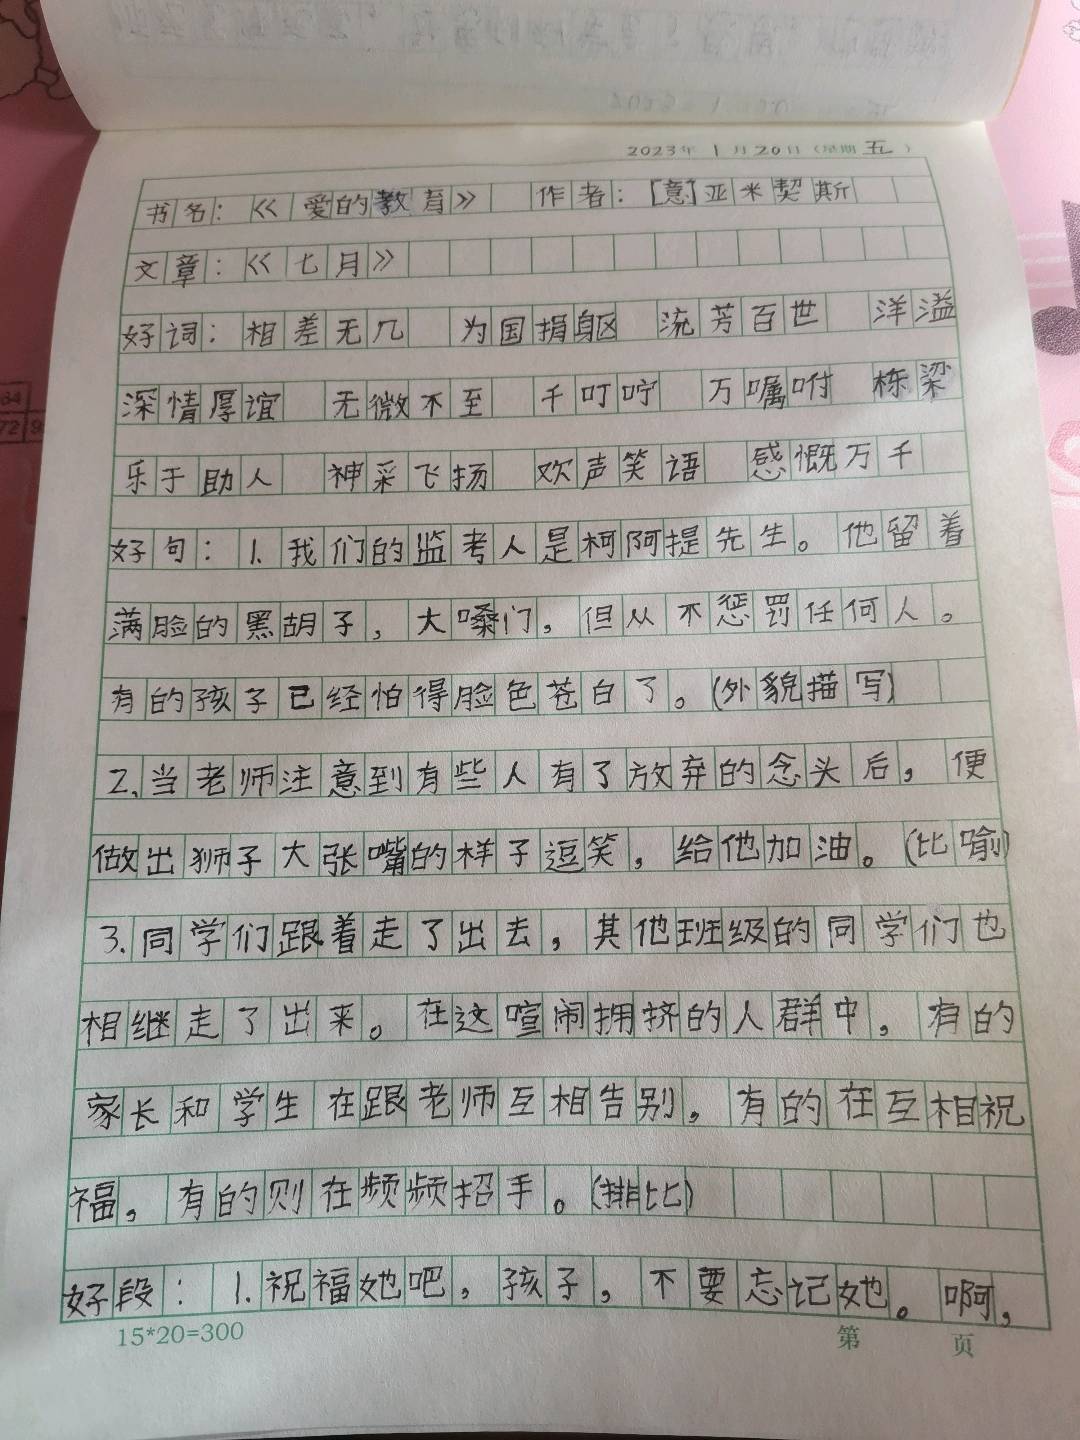 2023年 1月20日(星期五)
书名：《爱的教育》 作者：[意]亚米契斯
文章：《七月》
好词：相差无几 为国捐躯 流芳百世 洋溢
深情厚谊 无微不至 千叮咛 万嘱咐 栋梁
乐于助人 神采飞扬 欢声笑语 感慨万千
好句：1.我们的监考人是柯阿提先生。他留着
满脸的黑胡子，大嗓门，但从不惩罚任何人。
有的孩子已经怕得脸色苍白了。(外貌描写)
2.当老师注意到有些人有了放弃的念头后，便
做出狮子大张嘴的样子逗笑，给他加油。(比喻)
3.同学们跟着走了出去，其他班级的同学们也
相继走了出来。在这喧闹拥挤的人群中，有的
家长和学生在跟老师互相告别，有的在互相祝
福，有的则在频频招手。(排比)
好段：1.祝福她吧，孩子，不要忘记她。啊，
15*20=300 第 页